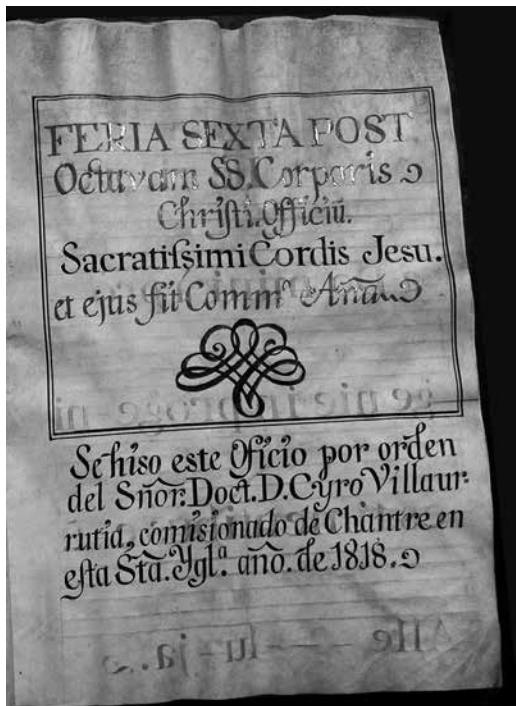 FERIA SEXTA POST
Octavam SS. Corporis
Christi. Officiũ.
Sacratiſsimi Cordis Jesu.
et ejus fit Commᵒ Añã.
Se hiso este Oficio por orden
del Sñor. Doct. D. Cyro Villaur-
rutia, comisionado de Chantre en
eſta Stã. Yglᵃ. año. de 1818.